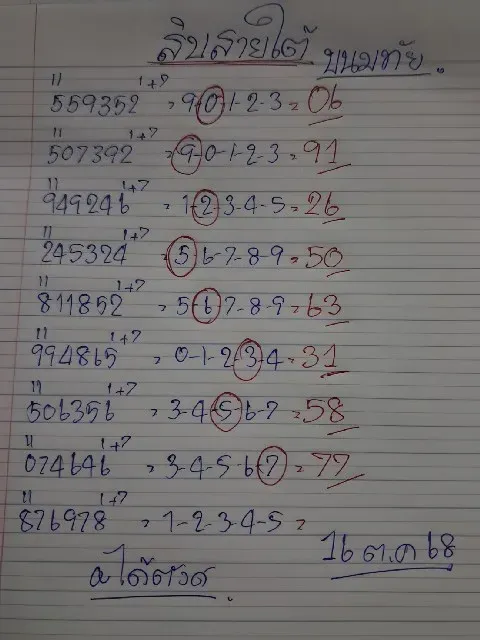 สืบสายใต้ ขนมทัย.
11 1+7
559352 = 9-0-1-2-3 = 06
11 1+7
507392 = 9-0-1-2-3 = 91
11 1+7
949246 = 1-2-3-4-5 = 26
11 1+7
245324 = 5-6-7-8-9 = 50
11 1+7
811852 = 5-6-7-8-9 = 63
11 1+7
994865 = 0-1-2-3-4 = 31
11 1+7
506356 = 3-4-5-6-7 = 58
11 1+7
074646 = 3-4-5-6-7 = 77
11 1+7
876978 = 1-2-3-4-5 =
16 ต.ค 68